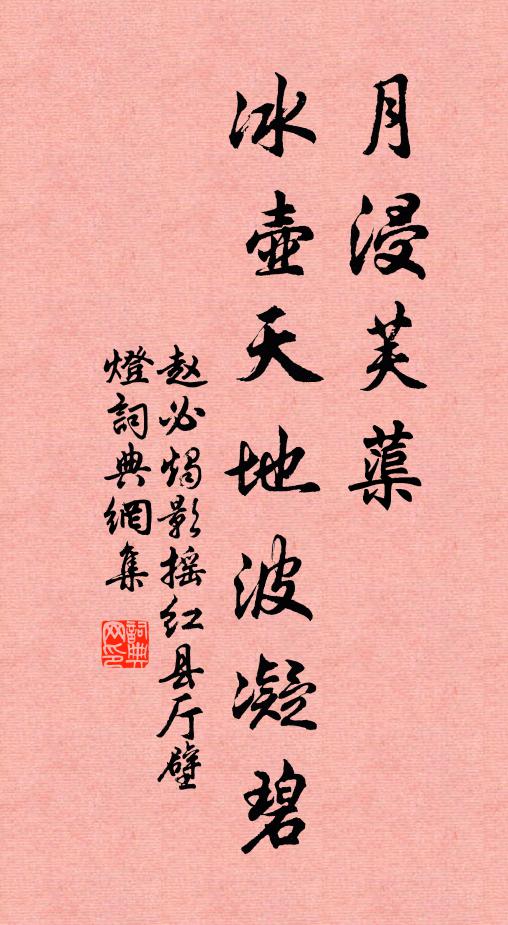 月浸芙蕖
冰壶天地波凝碧
赵必㷅影摇红县厅壁
燈詞典網集
詞典网印